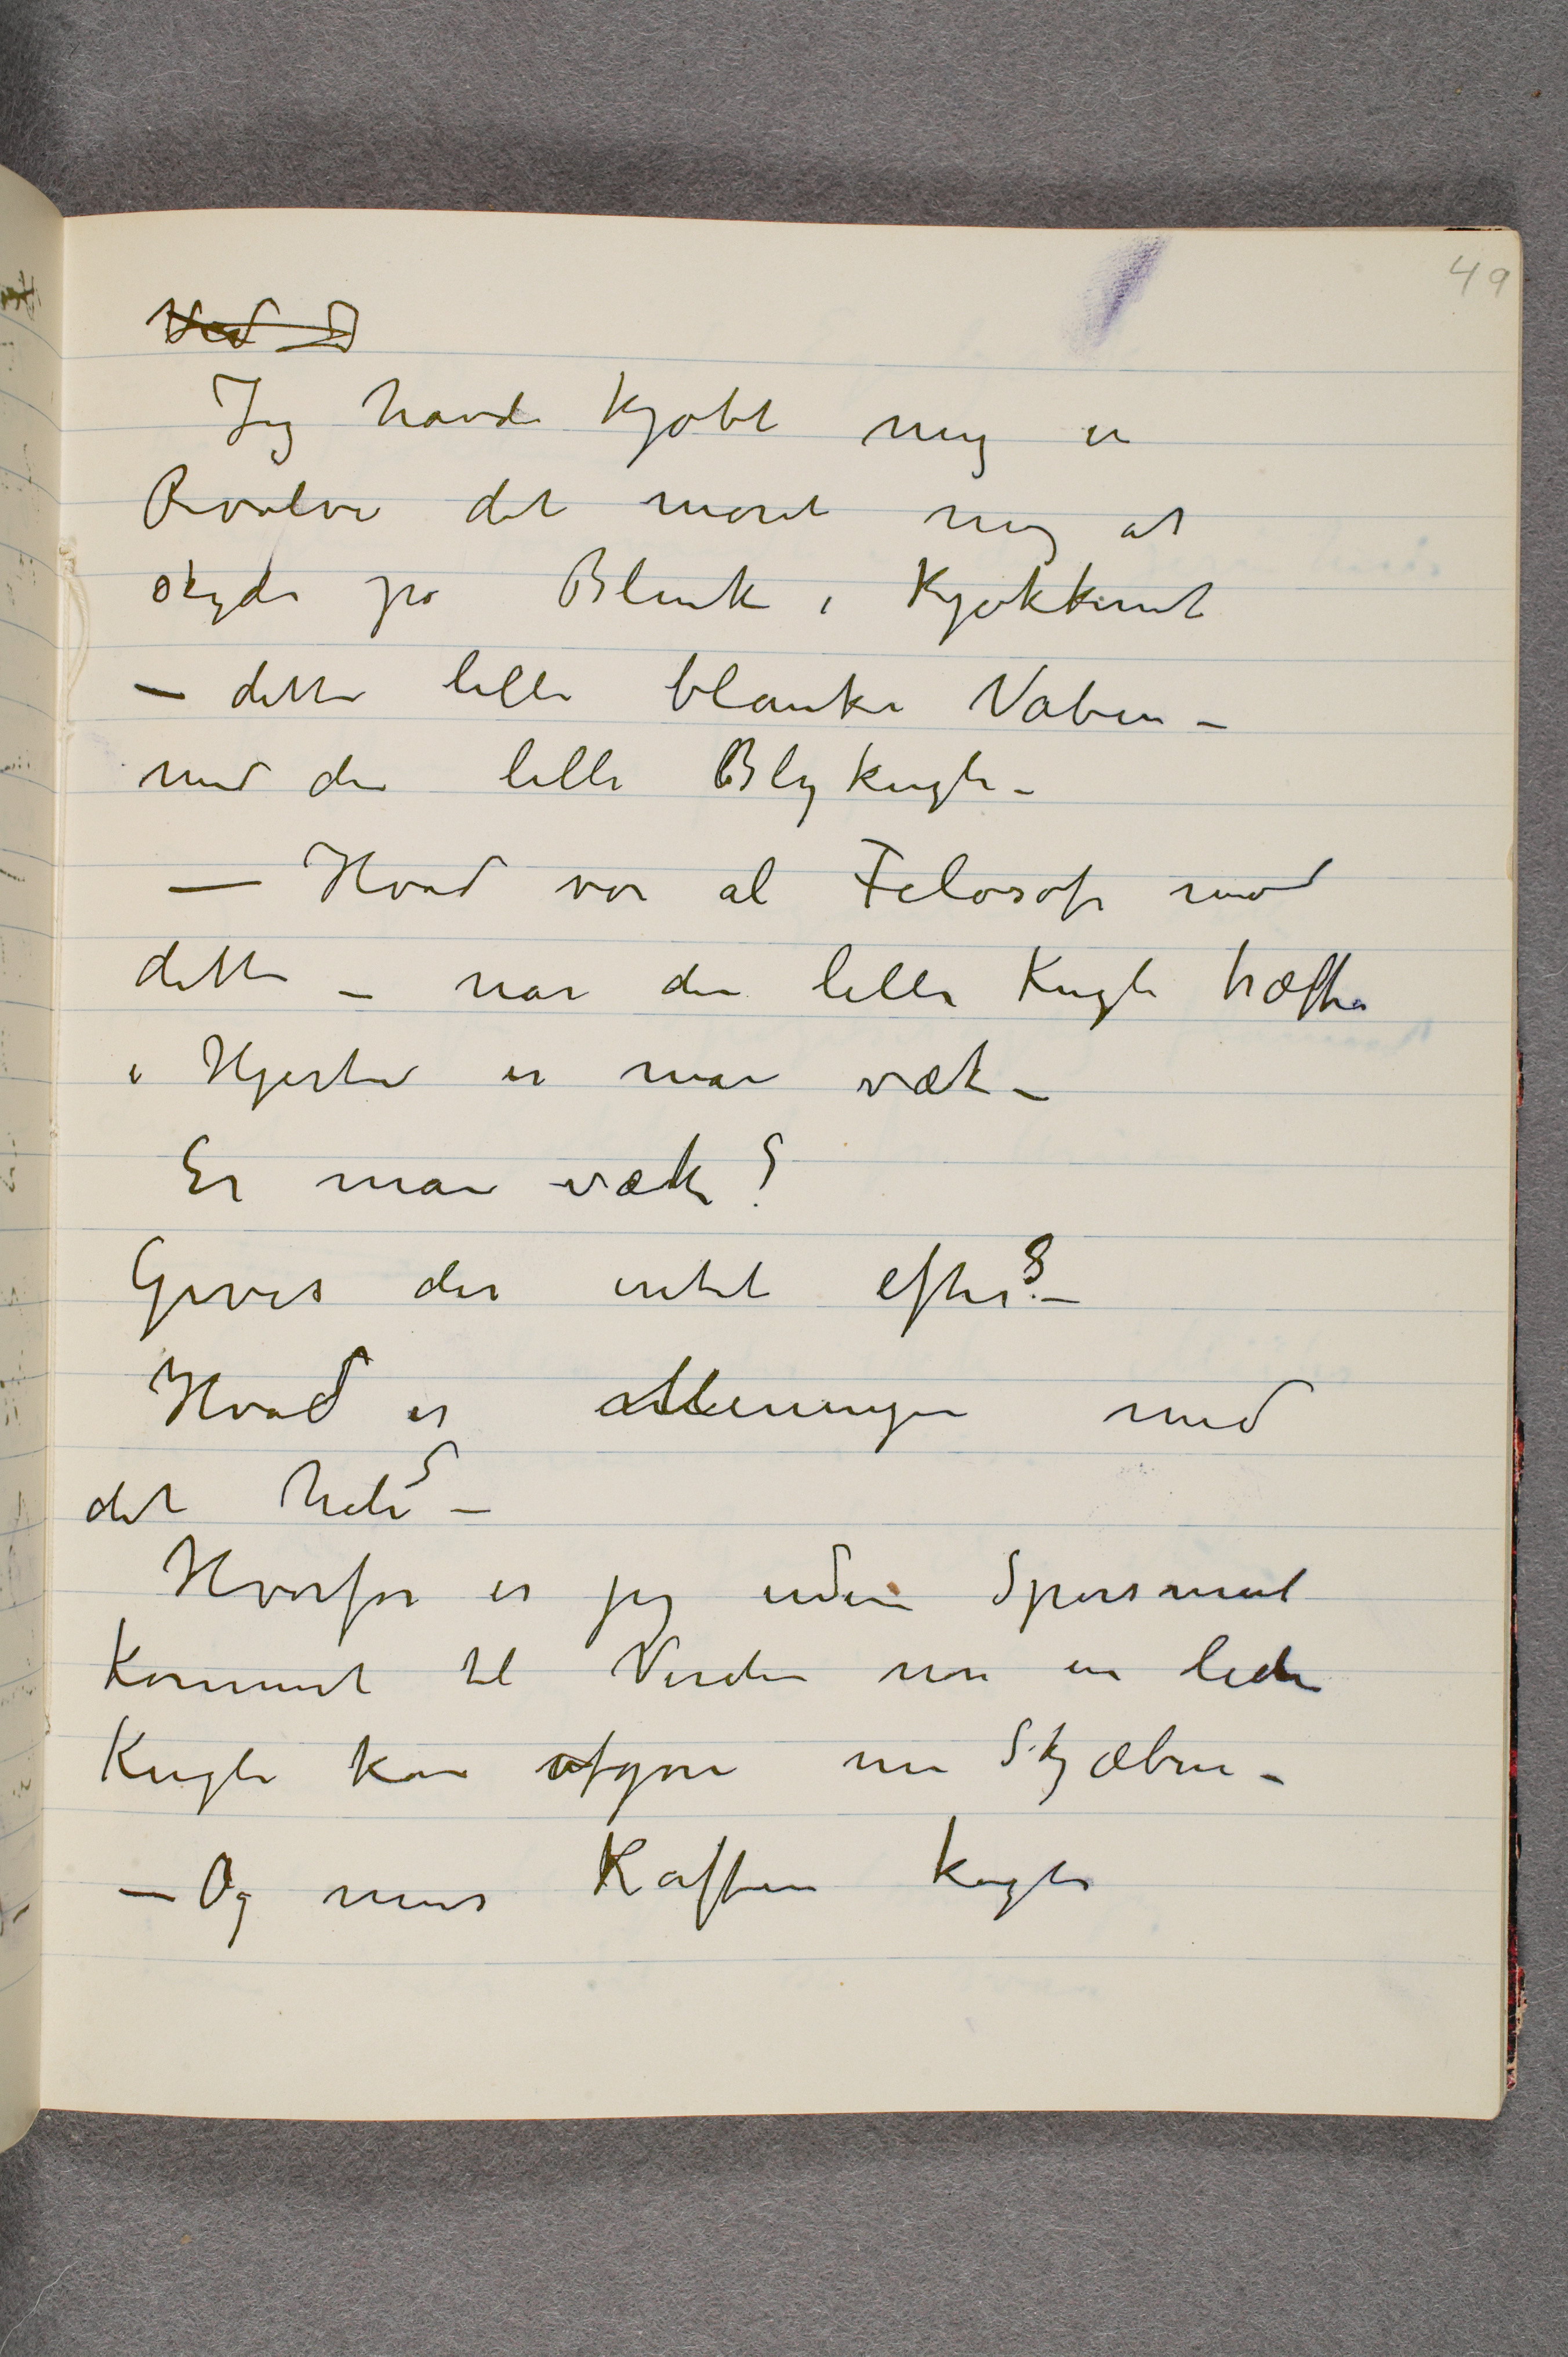 49
Ved D
Jeg havde kjøbt mig en
Revolver det moret mig at
skyde på Blink i Kjøkkenet
— dette lille blanke Våben –
med den lille Blykugle –
— Hvad var al Filosofi mod
dette – når den lille Kugle træffer
i Hjertet er man væk –
Er man væk?
Gives der intet efter? –
Hvad er Meningen med
det hele? –
Hvorfor er jeg uden Spørsmål
kommet til Verden når en liden
Kugle kan afgøre min Skjæbne –
— Og mens Kaffen kogte